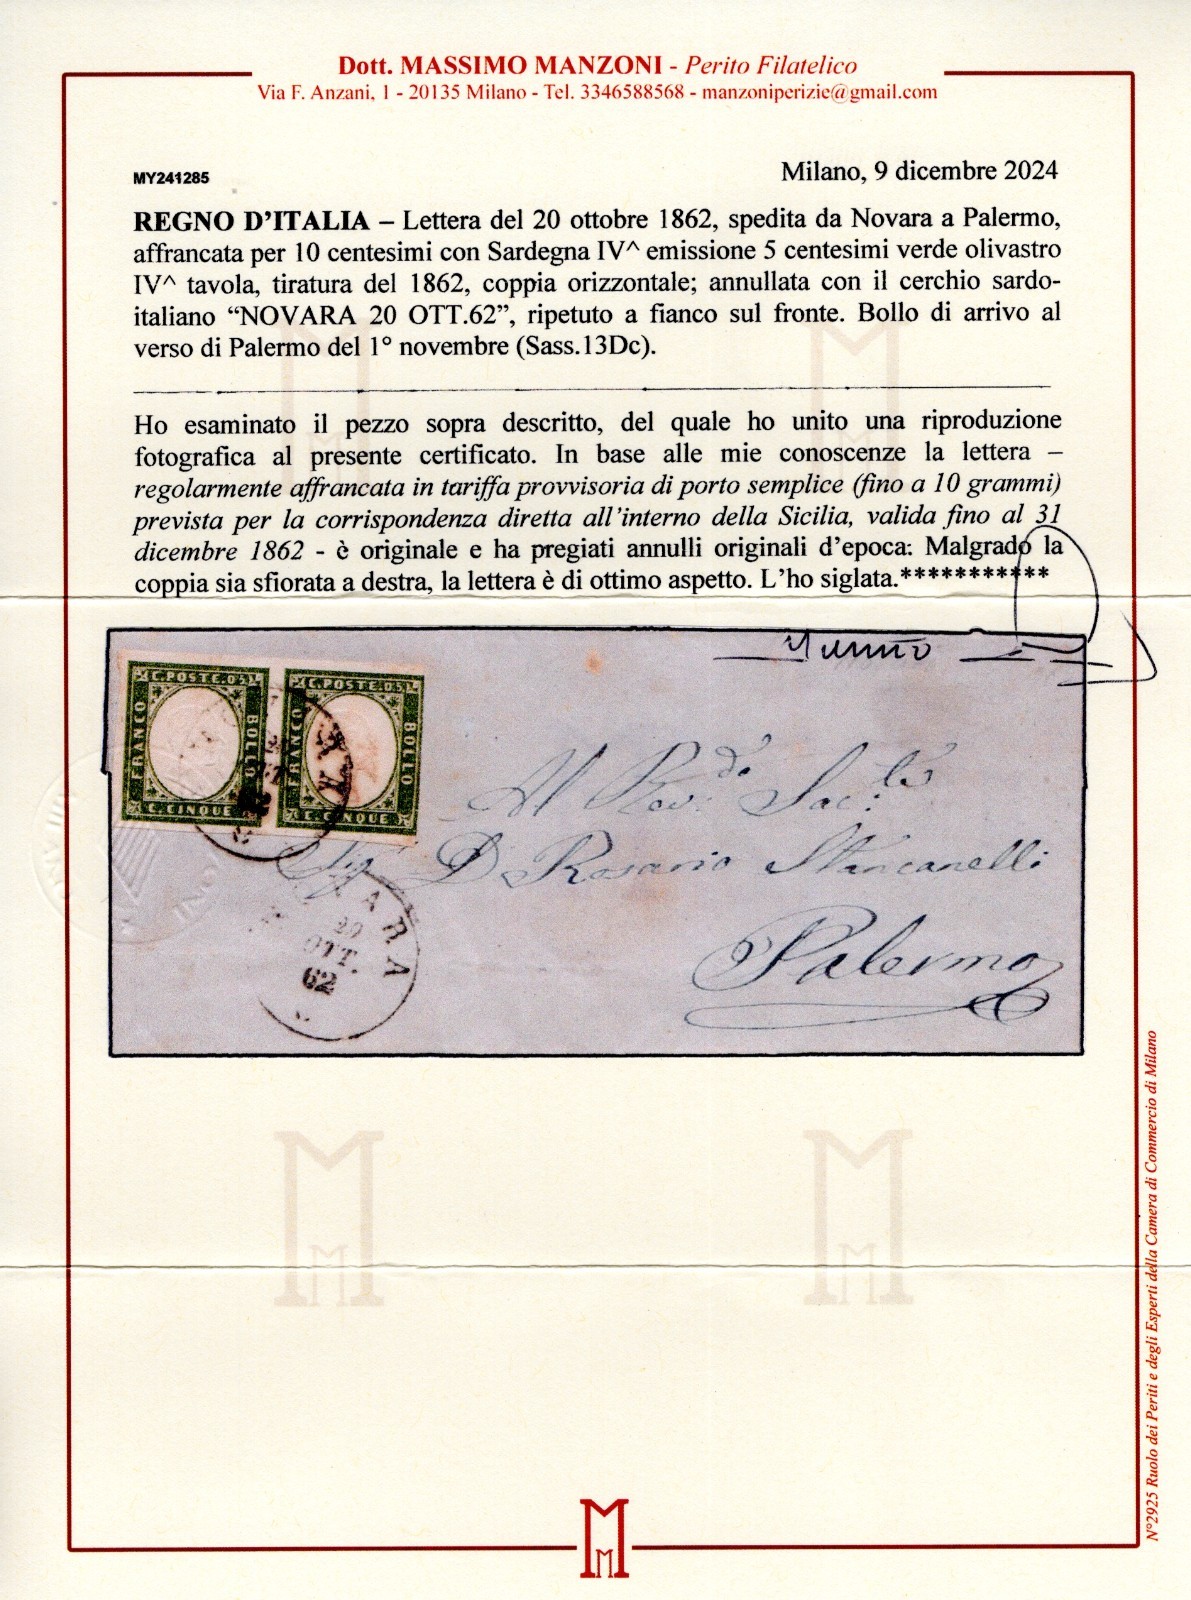 Dott. MASSIMO MANZONI - Perito Filatelico
Via F. Anzani, 1 - 20135 Milano - Tel. 3346588568 - manzoniperizie@gmail.com
MY241285
Milano, 9 dicembre 2024
REGNO D'ITALIA – Lettera del 20 ottobre 1862, spedita da Novara a Palermo,
affrancata per 10 centesimi con Sardegna IV^ emissione 5 centesimi verde olivastro
IV^ tavola, tiratura del 1862, coppia orizzontale; annullata con il cerchio sardo-
italiano “NOVARA 20 OTT.62”, ripetuto a fianco sul fronte. Bollo di arrivo al
verso di Palermo del 1° novembre (Sass.13Dc).
Ho esaminato il pezzo sopra descritto, del quale ho unito una riproduzione
fotografica al presente certificato. In base alle mie conoscenze la lettera –
regolarmente affrancata in tariffa provvisoria di porto semplice (fino a 10 grammi)
prevista per la corrispondenza diretta all'interno della Sicilia, valida fino al 31
dicembre 1862 - è originale e ha pregiati annulli originali d'epoca: Malgrado la
coppia sia sfiorata a destra, la lettera è di ottimo aspetto. L'ho siglata.***********
C.POSTE.05
FRANCO
BOLLO
C.CINQUE
C.POSTE.05
FRANCO
BOLLO
C.CINQUE
Al Rev.do Sac.
Sig D Rosario Stancanelli
Palermo
ARA
20
OTT.
62
N°2925 Ruolo dei Periti e degli Esperti della Camera di Commercio di Milano